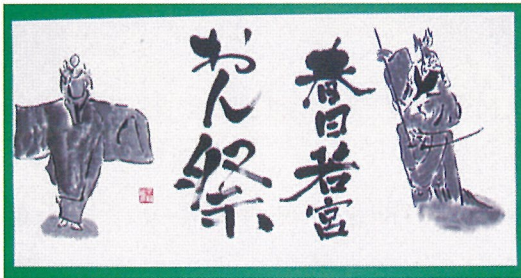 春日若宮
おん祭